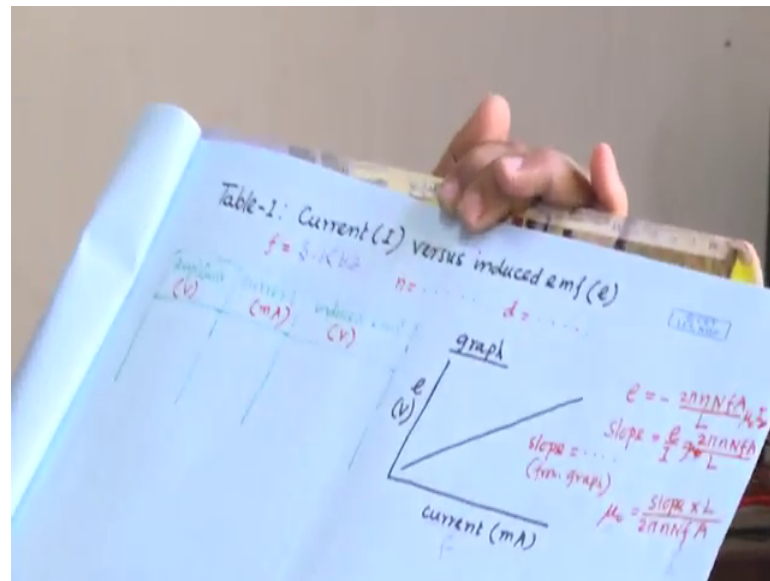 Table-1: Current (I) versus induced emf (e)
f =
n = ......
d = ......
(V)
(mA)
induced emf
(V)
graph
e
(V)
slope = ....
(from graph)
current (mA)
e = - 2πnNfA
L
slope = e
I
2πnNfA
L
μ₀ = slope × L
2πnNfA